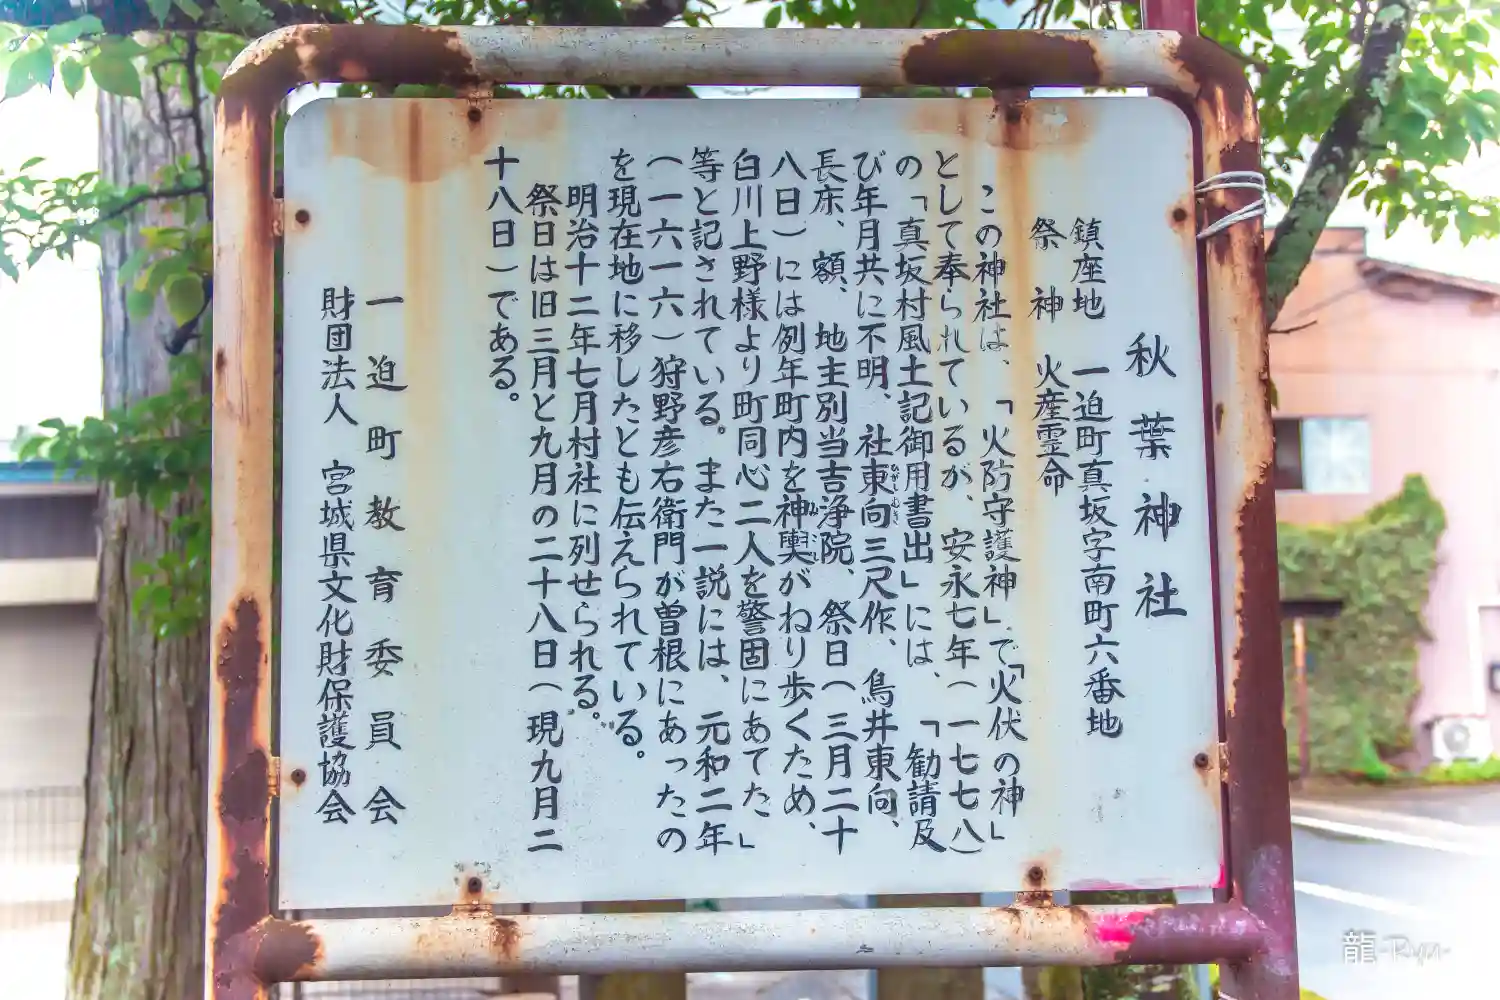 秋葉神社
鎮座地　一迫町真坂字南町六番地
祭　神　火産霊命
この神社は、「火防守護神」で「火伏の神」
として奉られているが、安永七年(一七七八)
の「真坂村風土記御用書出」には、「勧請及
び年月共に不明、社東向三尺作、鳥井東向、
ひがしむき
長床、額、地主別当吉浄院、祭日(三月二十
八日)には例年町内を神輿がねり歩くため、
みこし
白川上野様より町同心二人を警固にあてた」
等と記されている。また一説には、元和二年
(一六一六)狩野彦右衛門が曽根にあったの
を現在地に移したとも伝えられている。
明治十二年七月村社に列せられる。
祭日は旧三月と九月の二十八日(現九月二
十八日)である。
一迫町教育委員会
財団法人　宮城県文化財保護協会
龍-Ryu-